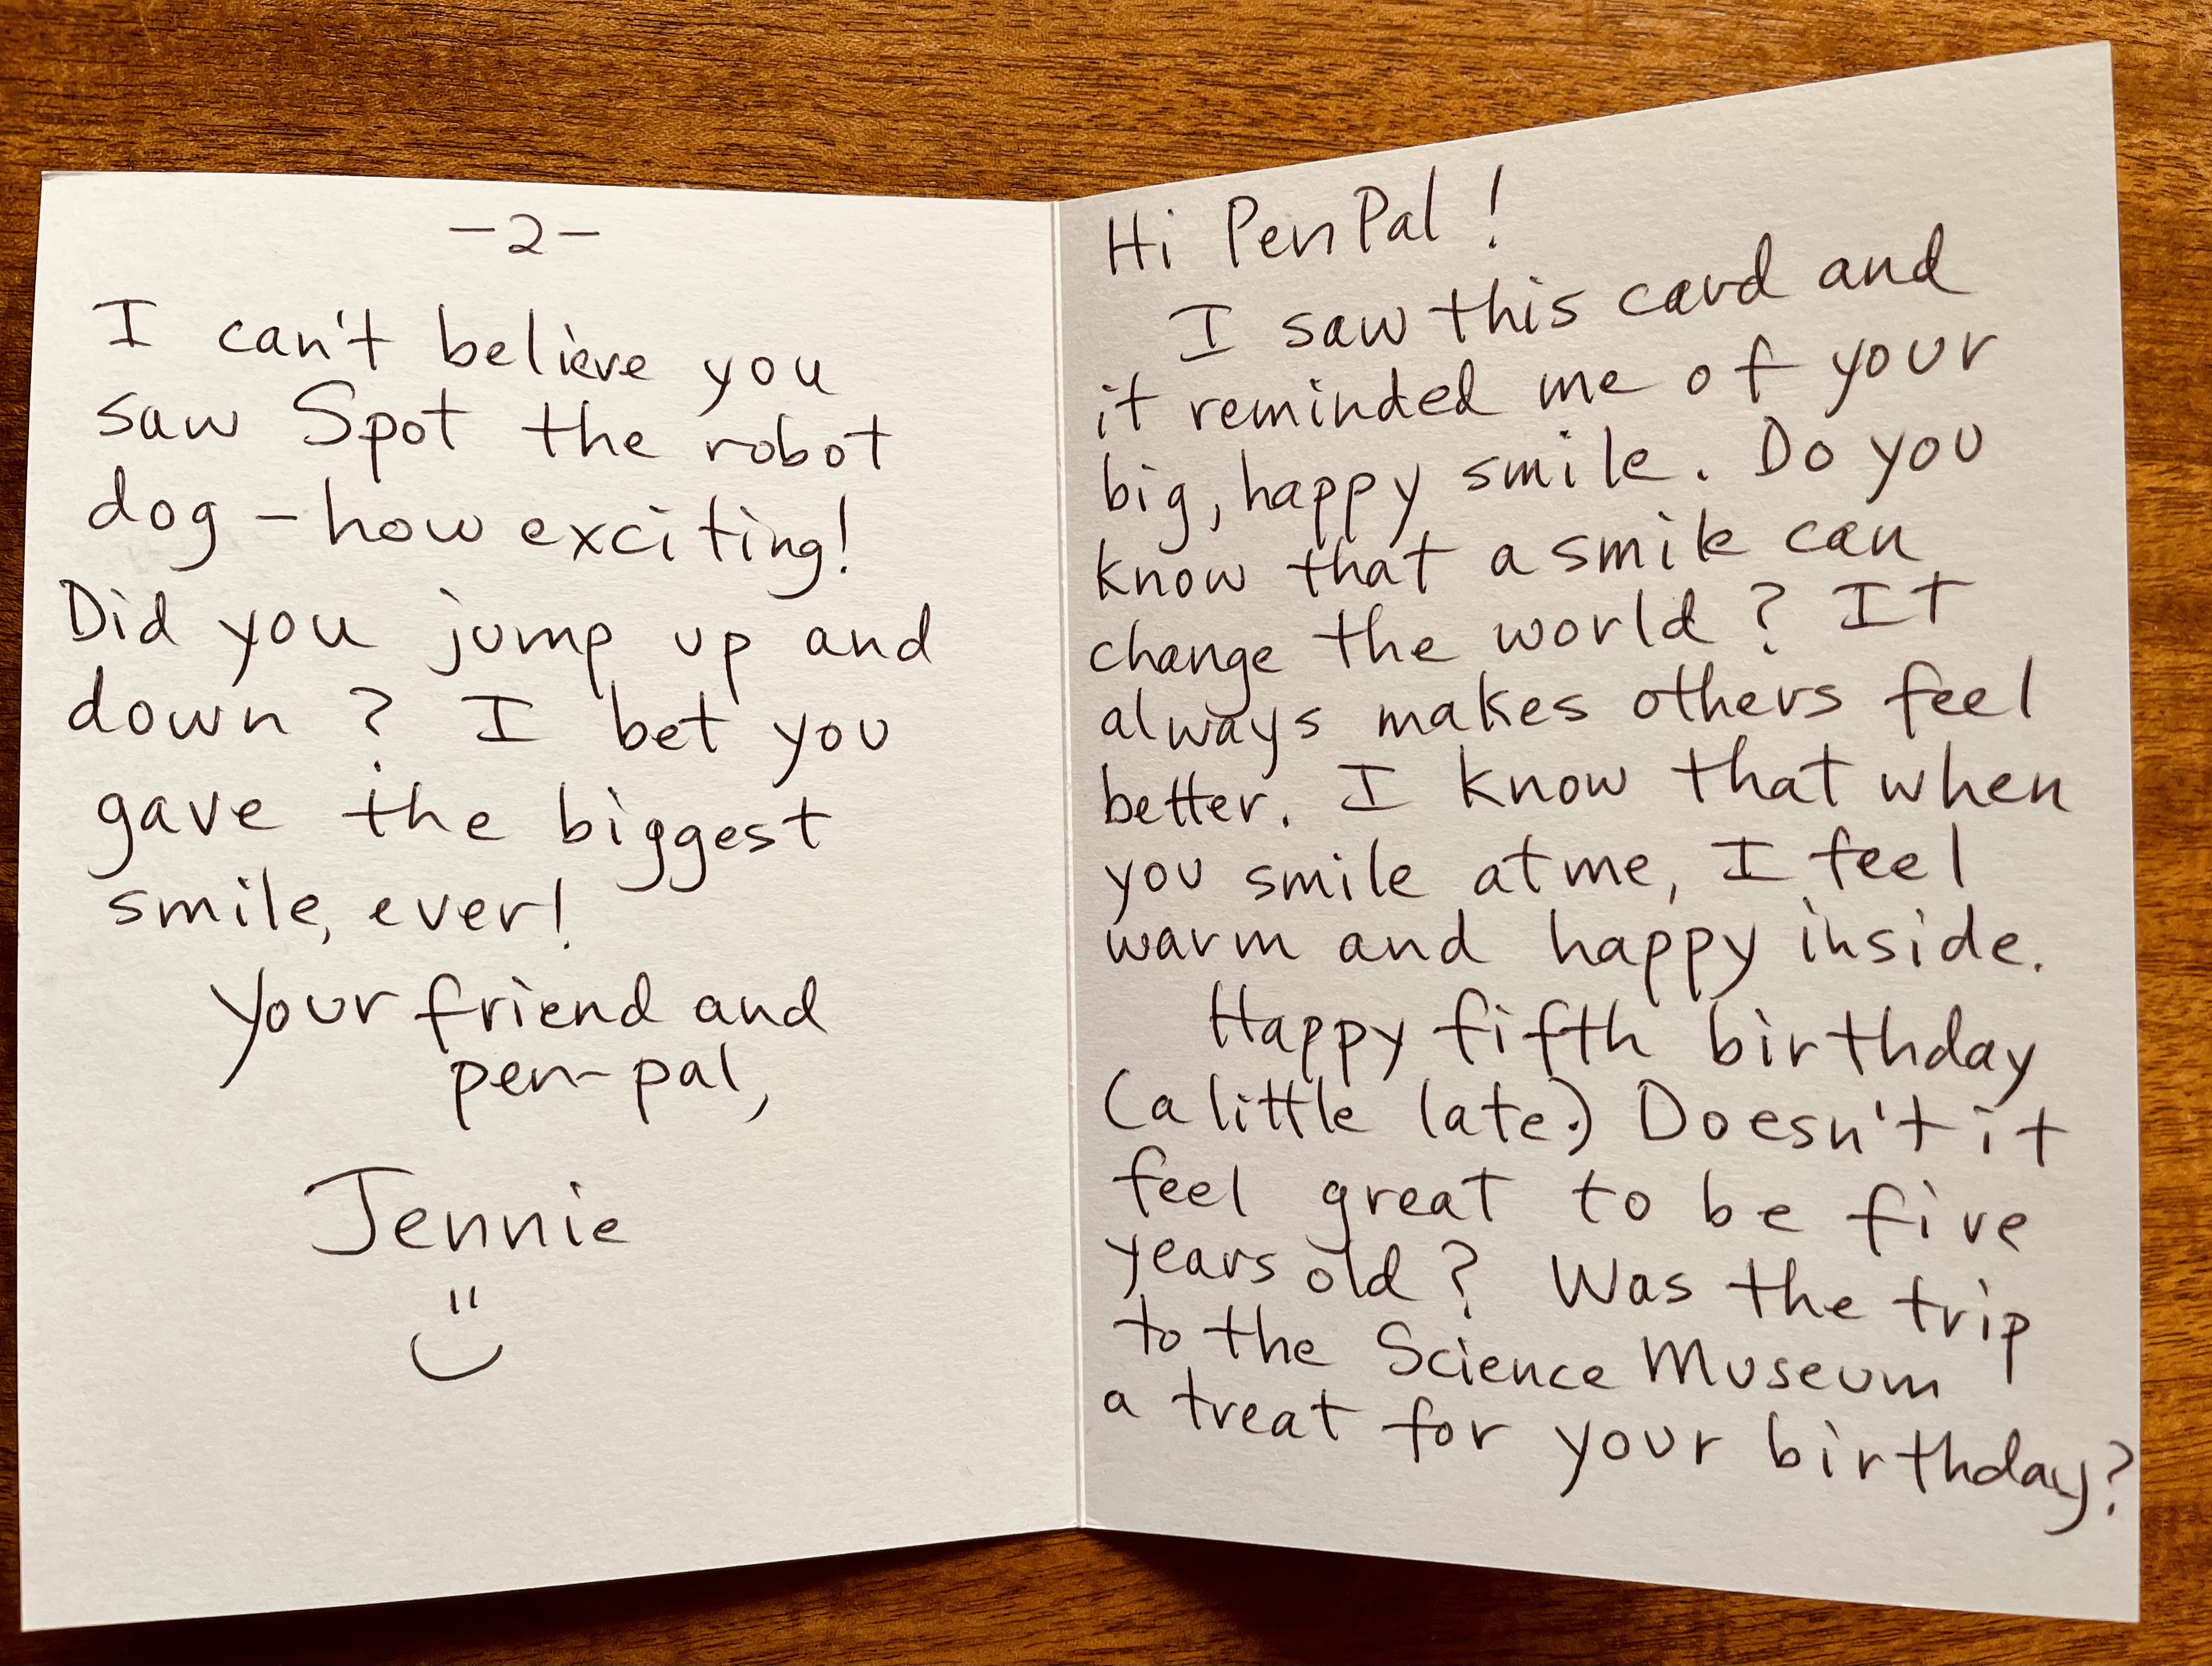 Hi PenPal!
I saw this card and
it reminded me of your
big, happy smile. Do you
know that a smile can
change the world? It
always makes others feel
better. I know that when
you smile at me, I feel
warm and happy inside.
Happy fifth birthday
(a little late.) Doesn't it
feel great to be five
years old? Was the trip
to the Science Museum
a treat for your birthday?
-2-
I can't believe you
saw Spot the robot
dog - how exciting!
Did you jump up and
down? I bet you
gave the biggest
smile, ever!
Your friend and
pen-pal,
Jennie